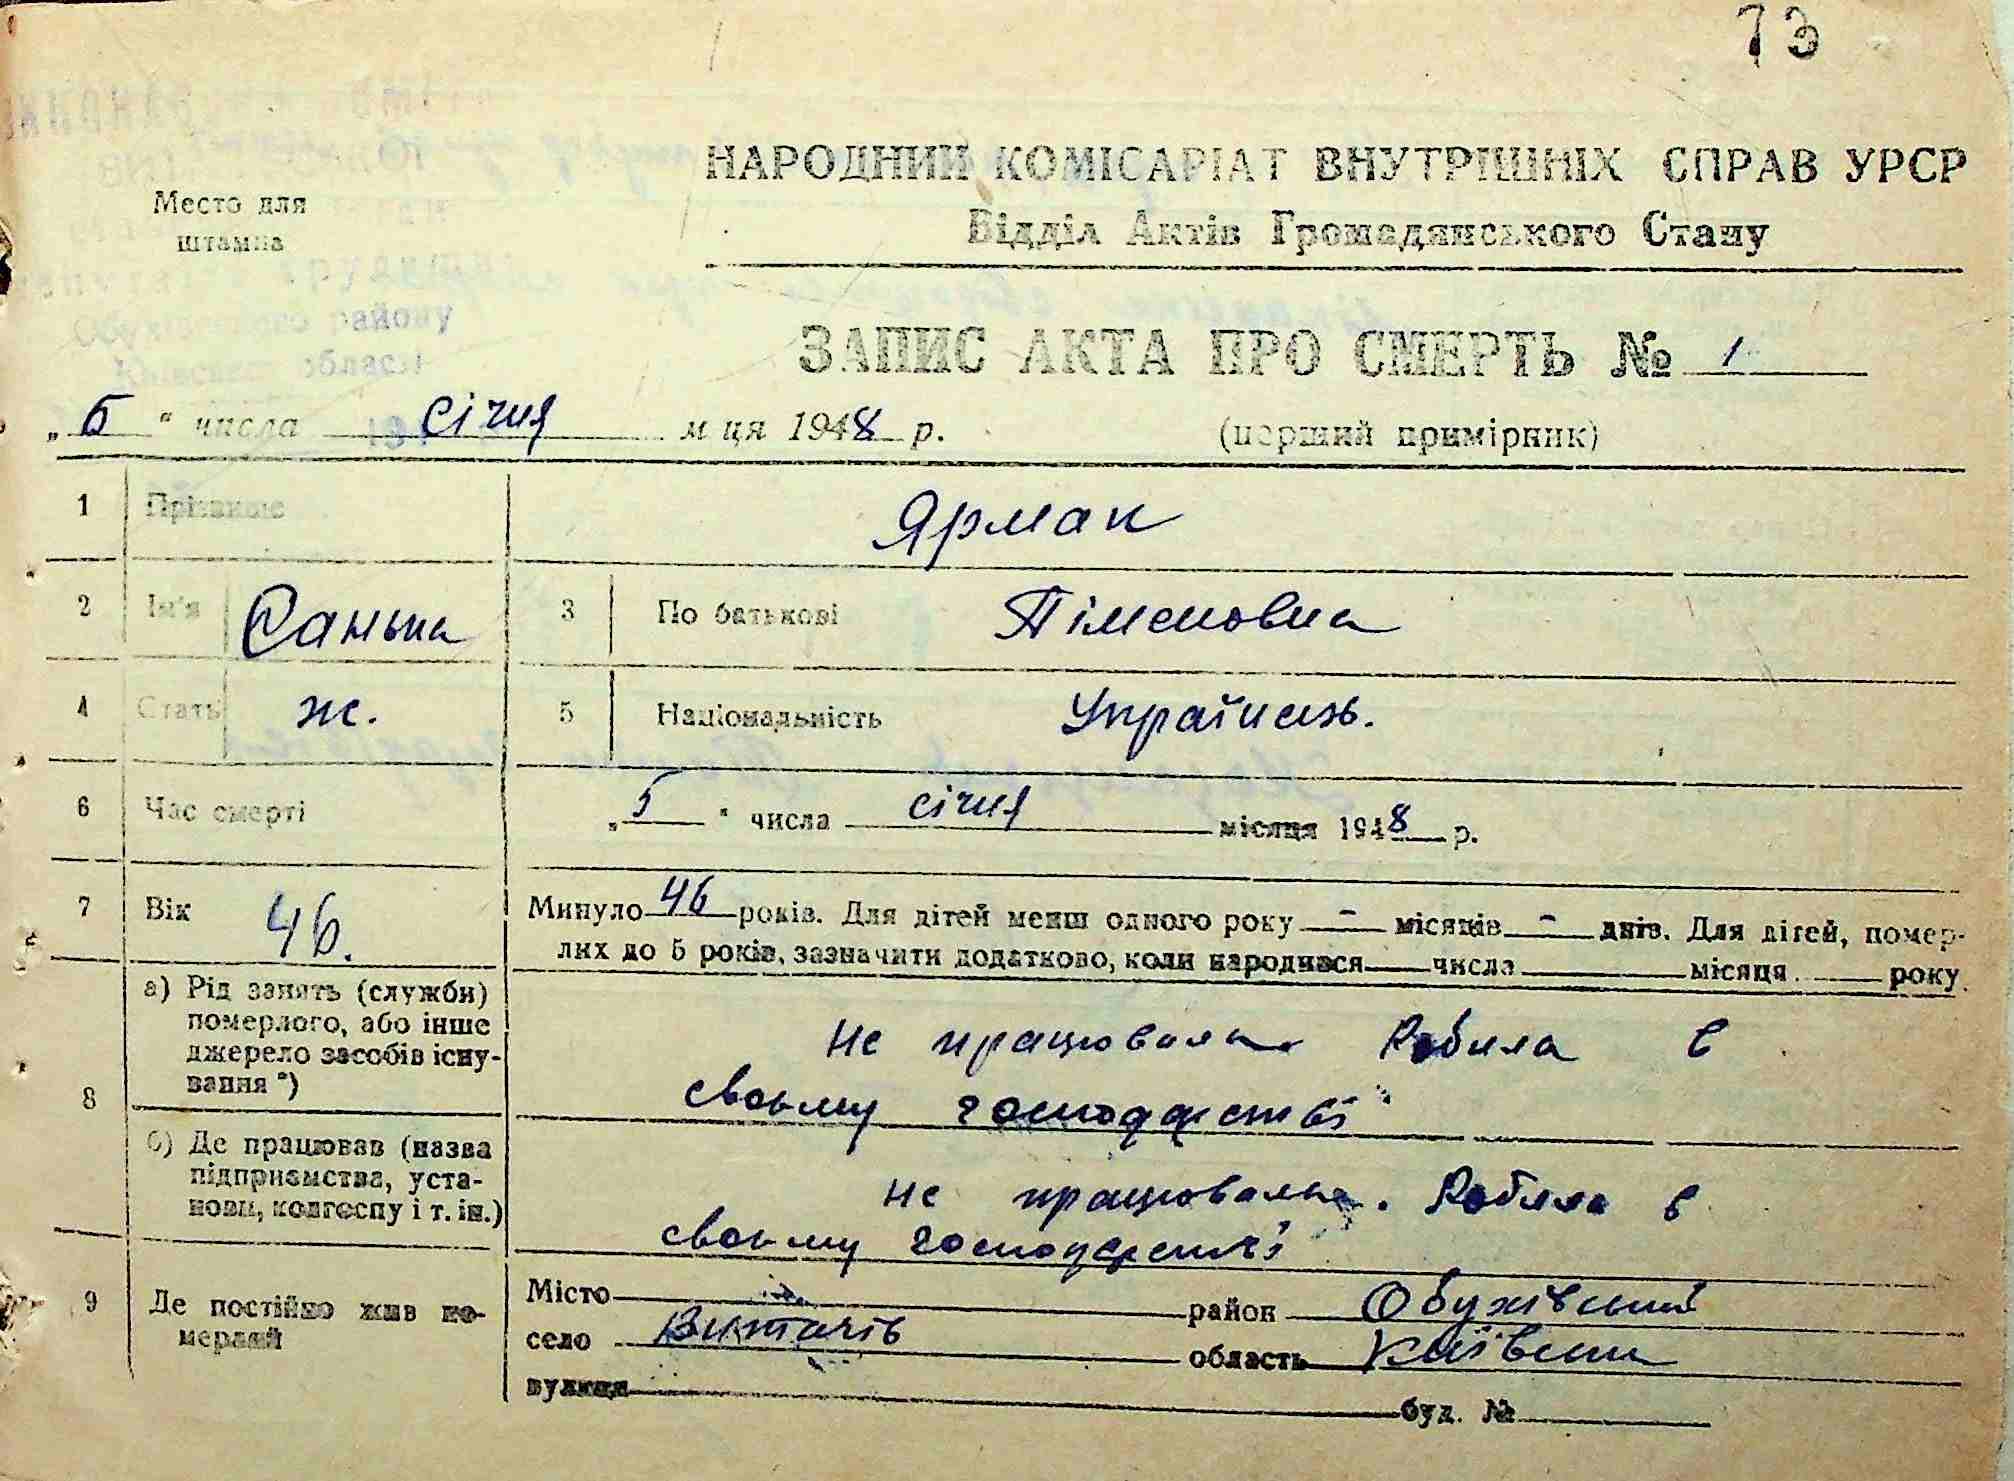 73
НАРОДНИЙ КОМІСАРІАТ ВНУТРІШНІХ СПРАВ УРСР
Відділ Актів Громадянського Стану
Место для
штампа
Обухівського району
Київської області
ЗАПИС АКТА ПРО СМЕРТЬ № 1
„5“ числа січня м ця 1948 р. (перший примірник)
1 Прізвище Ярмак
2 Ім'я Санька 3 По батькові Піменовна
4 Стать ж. 5 Національність Українськ.
6 Час смерті „5“ числа січня місяця 1948 р.
7 Вік 46. Минуло 46 років. Для дітей менш одного року - місяців - днів. Для дітей, помер-
лих до 5 років, зазначити додатково, коли народився числа місяця року
8 а) Рід занять (служби)
померлого, або інше
джерело засобів існу-
вання *)
не працювала Робила в
своьму господарстві
б) Де працював (назва
підприємства, уста-
нови, колгоспу і т. ін.)
не працювала. Робила в
своьму господарстві
9 Де постійно жив по-
мерлий
Місто район Обухівський
село Витачів область Київська
вулиця буд. №